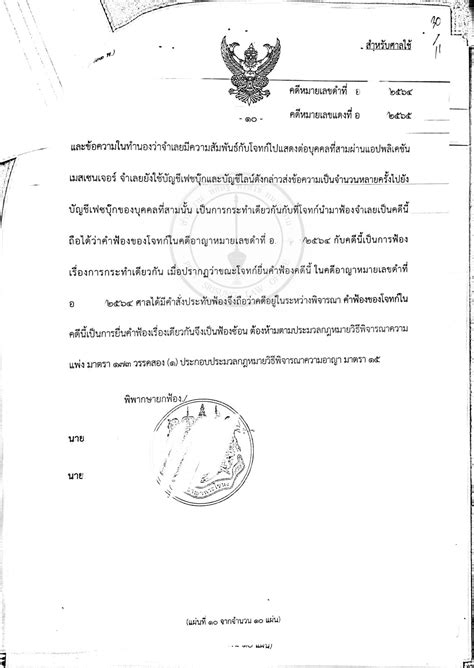 ๓๐
๑๑
สำหรับศาลใช้
(๓๑ พ.)
คดีหมายเลขดำที่ อ ๒๕๖๔
- ๑๐ -
คดีหมายเลขแดงที่ อ ๒๕๖๕
และข้อความในทำนองว่าจำเลยมีความสัมพันธ์กับโจทก์ไปแสดงต่อบุคคลที่สามผ่านแอปพลิเคชัน
เมสเซนเจอร์ จำเลยยังใช้บัญชีเฟซบุ๊กและบัญชีไลน์ดังกล่าวส่งข้อความเป็นจำนวนหลายครั้งไปยัง
บัญชีเฟซบุ๊กของบุคคลที่สามนั้น เป็นการกระทำเดียวกันกับที่โจทก์นำมาฟ้องจำเลยเป็นคดีนี้
ถือได้ว่าคำฟ้องของโจทก์ในคดีอาญาหมายเลขดำที่ อ. /๒๕๖๔ กับคดีนี้เป็นการฟ้อง
เรื่องการกระทำเดียวกัน เมื่อปรากฏว่าขณะโจทก์ยื่นคำฟ้องคดีนี้ ในคดีอาญาหมายเลขดำที่
อ /๒๕๖๔ ศาลได้มีคำสั่งประทับฟ้องจึงถือว่าคดีอยู่ในระหว่างพิจารณา คำฟ้องของโจทก์ใน
คดีนี้เป็นการยื่นคำฟ้องเรื่องเดียวกันจึงเป็นฟ้องซ้อน ต้องห้ามตามประมวลกฎหมายวิธีพิจารณาความ
แพ่ง มาตรา ๑๗๓ วรรคสอง (๑) ประกอบประมวลกฎหมายวิธีพิจารณาความอาญา มาตรา ๑๕
พิพากษายกฟ้อง/
นาย
นาย
(แผ่นที่ ๑๐ จากจำนวน ๑๐ แผ่น)
๑๐ แผ่น)